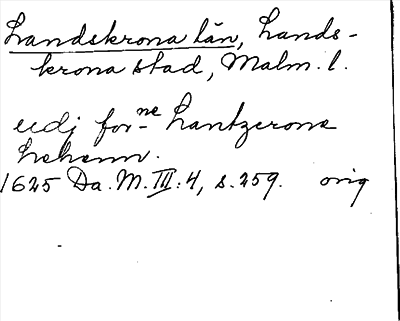 Landskrona län, Lands-
krona stad, Malm. l.
udj for-ne Lantzcrone
Lehenn.
1625 Da. M. III: 4, s. 259. orig